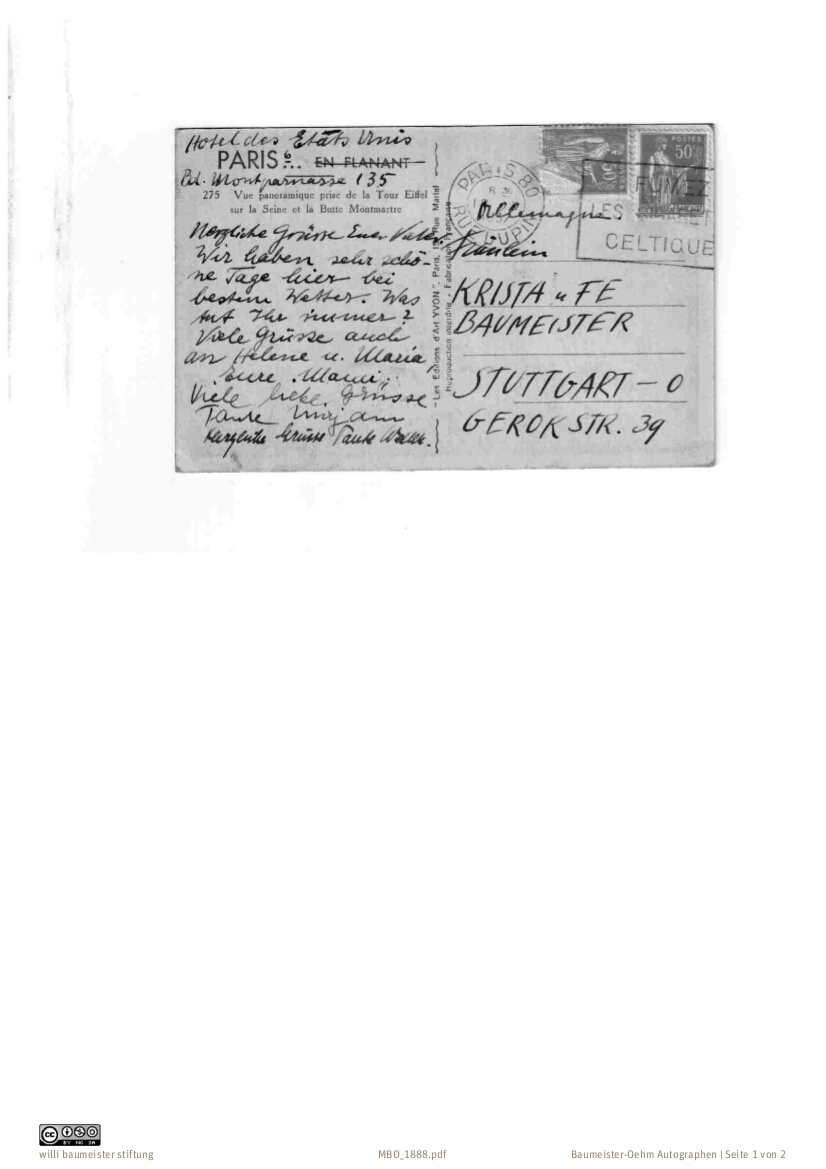 Hotel des Etats Unis
PARIS 6 ... EN FLANANT
Bd. Montparnasse 135
275 Vue panoramique prise de la Tour Eiffel
sur la Seine et la Butte Montmartre
Herzliche Grüsse Euer Vater
Wir haben sehr schö-
ne Tage hier bei
bestem Wetter. Was
tut Ihr immer?
Viele Grüsse auch
an Helene u. Maria,
Eure Mami.
Viele liebe Grüsse
Tante Mirjam
Grüsse Tante
"Les Editions d'Art YVON", Paris, Rue Martel
Reproduction interdite - Fabrication Française
PARIS 80
R. DUPIN
50
POSTES
50
FUMEZ
LES
CELTIQUE
Allemagne
Fräulein
KRISTA u FE
BAUMEISTER
STUTTGART - O
GEROKSTR. 39
CC BY NC SA
willi baumeister stiftung
MBO_1888.pdf
Baumeister-Oehm Autographen | Seite 1 von 2